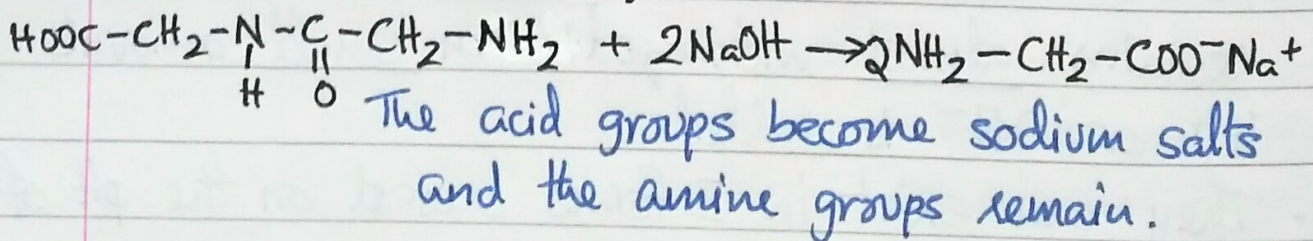 HOOC-CH₂-N-C-CH₂-NH₂ + 2NaOH → 2NH₂-CH₂-COO⁻Na⁺
H O
The acid groups become sodium salts
and the amine groups remain.